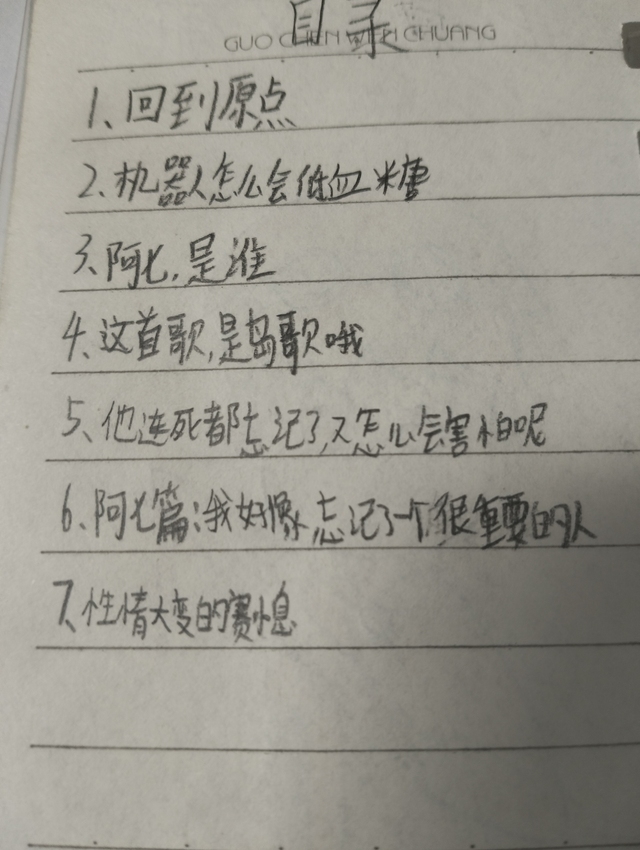 目录
GUO CHEN WEN CHUANG
1、回到原点
2、机器人怎么会低血糖
3、阿七,是谁
4、这首歌,是岛歌哦
5、他连死都忘记了,又怎么会害怕呢
6、阿七篇:我好像忘记了一个很重要的人
7、性情大变的赛小息